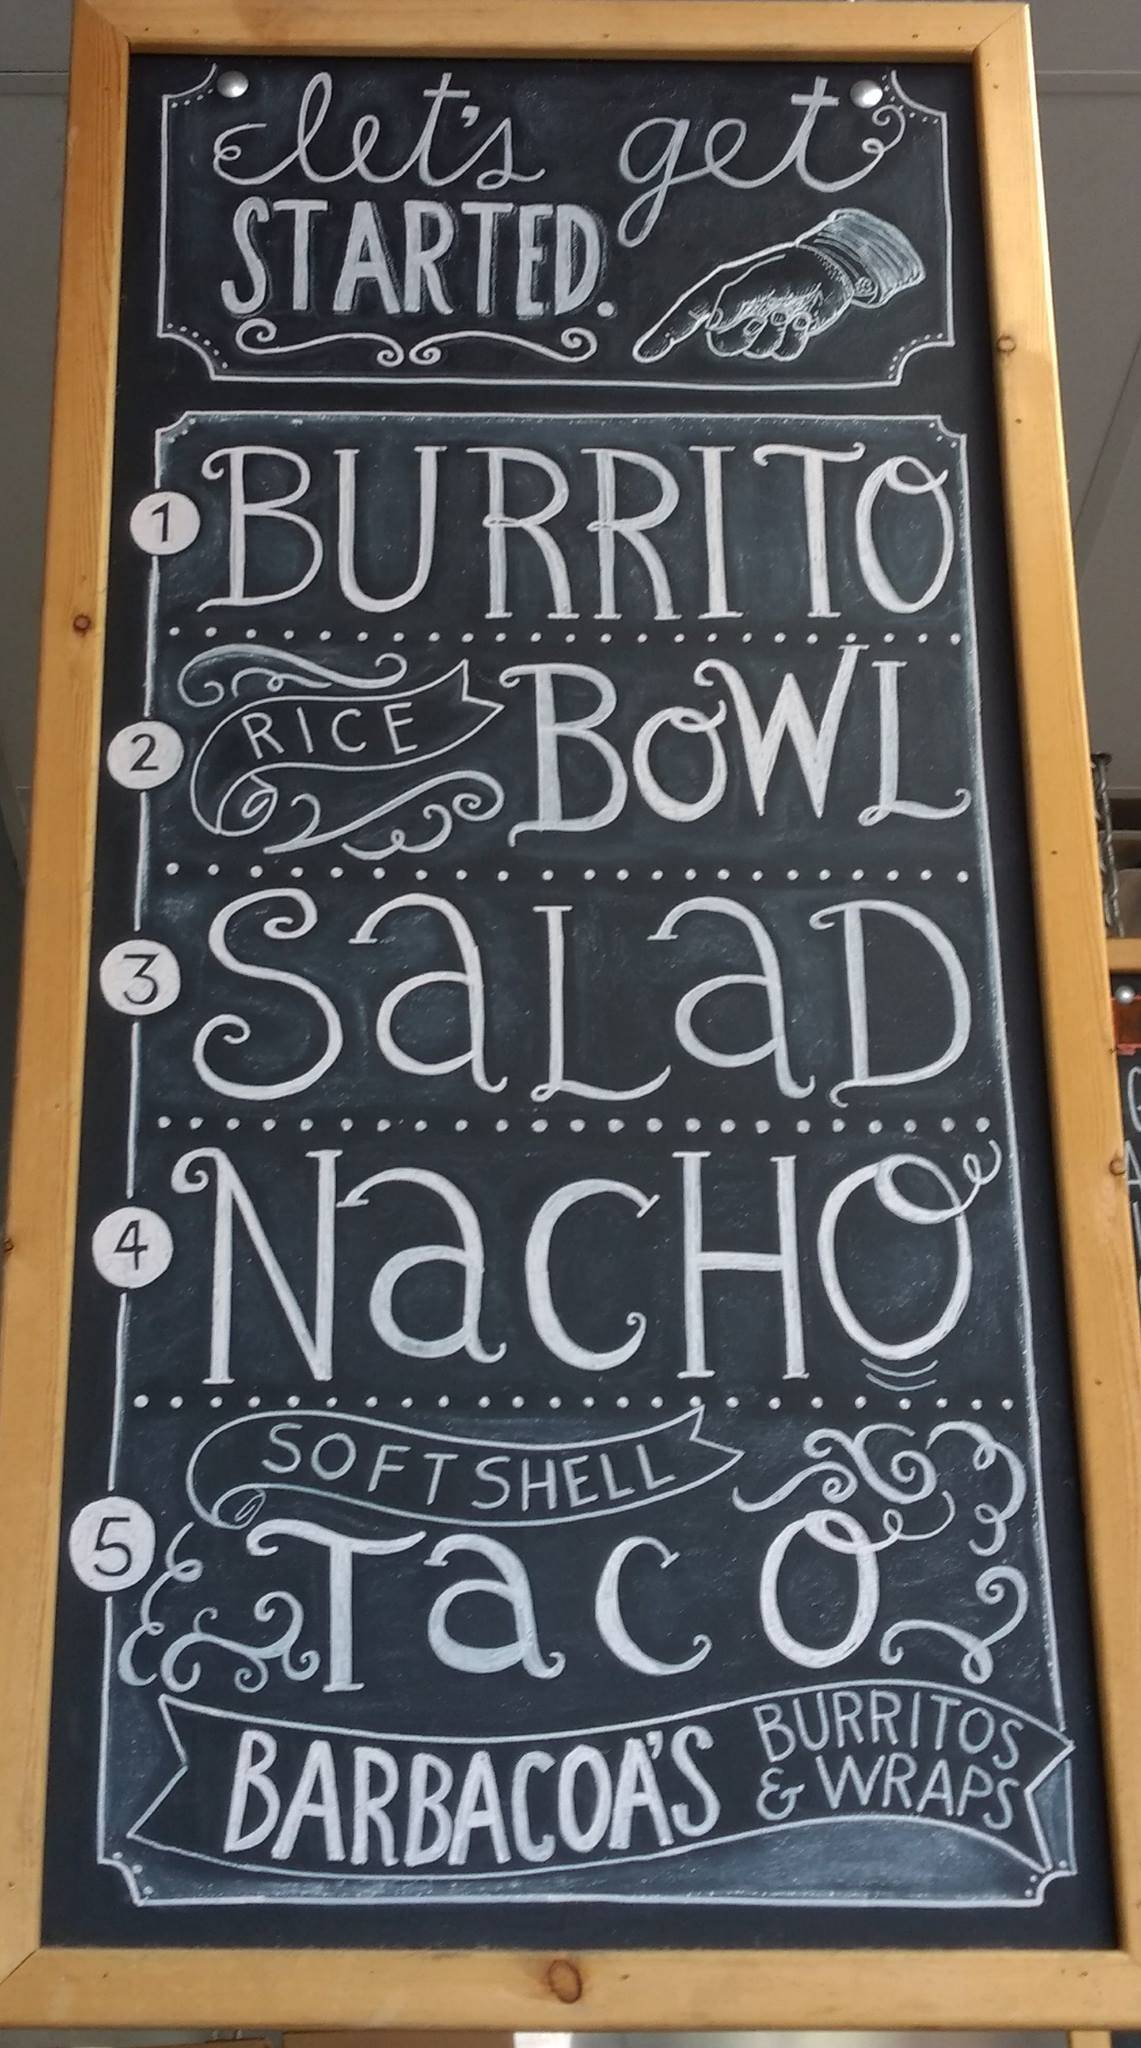 let's get
STARTED.
1 BURRITO
2 RICE BOWL
3 SALAD
4 NACHO
SOFT SHELL
5 TACO
BARBACOA'S BURRITOS
& WRAPS